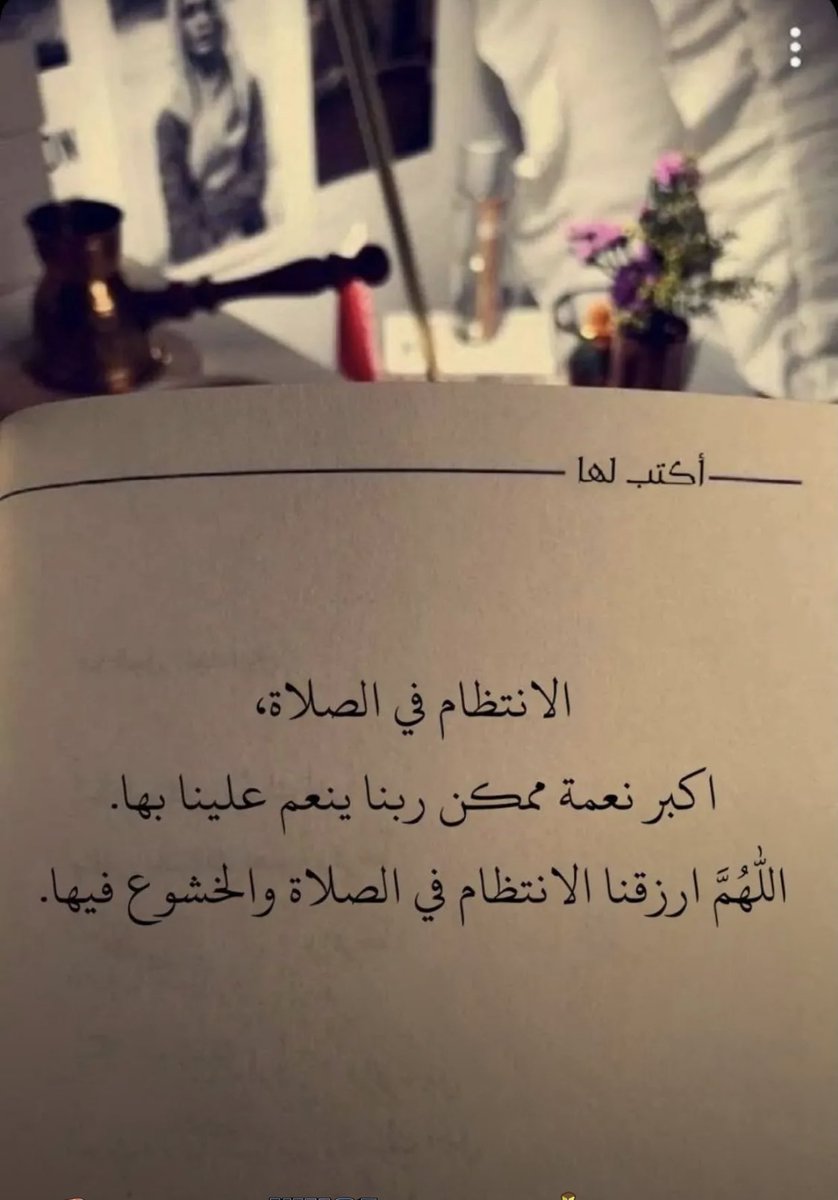 أكتب لها
الانتظام في الصلاة،
اكبر نعمة ممكن ربنا ينعم علينا بها.
اللَّهُمَّ ارزقنا الانتظام في الصلاة والخشوع فيها.